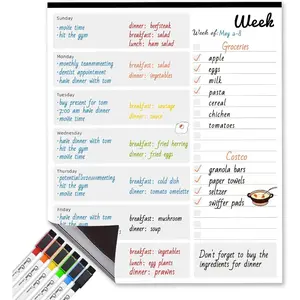 Week
Week of: May 2-8
Sunday
· movie time
· hit the gym
dinner: beefsteak
breakfast: salad
lunch: ham salad
Monday
· monthly teammeeting
· dentist appointment
· have dinner with tom
breakfast: salad
dinner: vegetables
Tuesday
· buy present for tom
· 7:00 am have dinner
· movie time
breakfast: sausage
dinner: sauce
Wednesday
· have dinner with tom
· hit the gym
· movie time
breakfast: fried herring
dinner: fried eggs
Thursday
· potentialcustommeeting
· hit the gym
· movie time
breakfast: cold dish
dinner: tomato omelette
Friday
· movie time
· hit the gym
· have dinner with tom
breakfast: mushroom
dinner: soup
breakfast: vegetables
lunch: egg plants
dinner: prawns
Groceries
apple
eggs
milk
pasta
cereal
chicken
tomatoes
Costco
granola bars
paper towels
seltzer
swiffer pads
Don't forget to buy the
ingredients for dinner